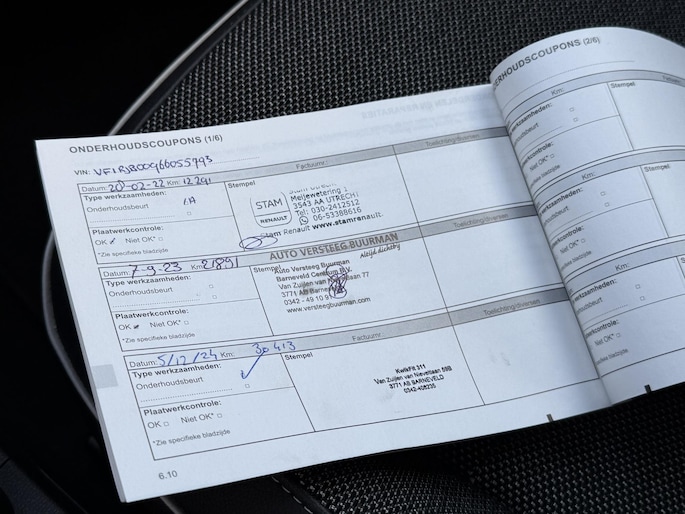 ONDERHOUDSCOUPONS (1/6)
VIN: VF1RJB00966055793
Factuurnr.: Toelichting/diversen
Datum: 20-02-22 Km: 12291
Type werkzaamheden:
Onderhoudsbeurt
Stempel
STAM
RENAULT
Meijewetering 1
3543 AA UTRECHT
Tel: 030-2412512
06-53388616
Stam Renault www.stamrenault.
Plaatwerkcontrole:
OK Niet OK*
*Zie specifieke bladzijde
Toelichting/diversen
Datum: 7-9-23 Km: 21891
Type werkzaamheden:
Onderhoudsbeurt
Stempel
AUTO VERSTEEG BUURMAN
Altijd dichtbij
Auto Versteeg Buurman
Barneveld Centrum B.V.
Van Zuijlen van Nieveltlaan 77
3771 AB Barneveld
0342 - 49 10 9
www.versteegbuurman.com
Plaatwerkcontrole:
OK Niet OK*
*Zie specifieke bladzijde
Factuurnr.: Toelichting/diversen
Datum: 5/12/24 Km: 30413
Type werkzaamheden:
Onderhoudsbeurt
Stempel
KwikFit 311
Van Zuijlen van Nieveltlaan 59B
3771 AB BARNEVELD
0342-408235
Plaatwerkcontrole:
OK Niet OK*
*Zie specifieke bladzijde
6.10
ERHOUDSCOUPONS (2/6)
Km: Factuurnr
werkzaamheden:
Stempel
houdsbeurt
werkcontrole:
Niet OK*
specifieke bladzijde
Km:
werkzaamheden:
Stempel
oudsbeurt
werkcontrole:
Niet OK*
ifieke bladzijde
Km:
werkzaamheden:
Stempel
dsbeurt
rkcontrole:
Niet OK*
ke bladzijde